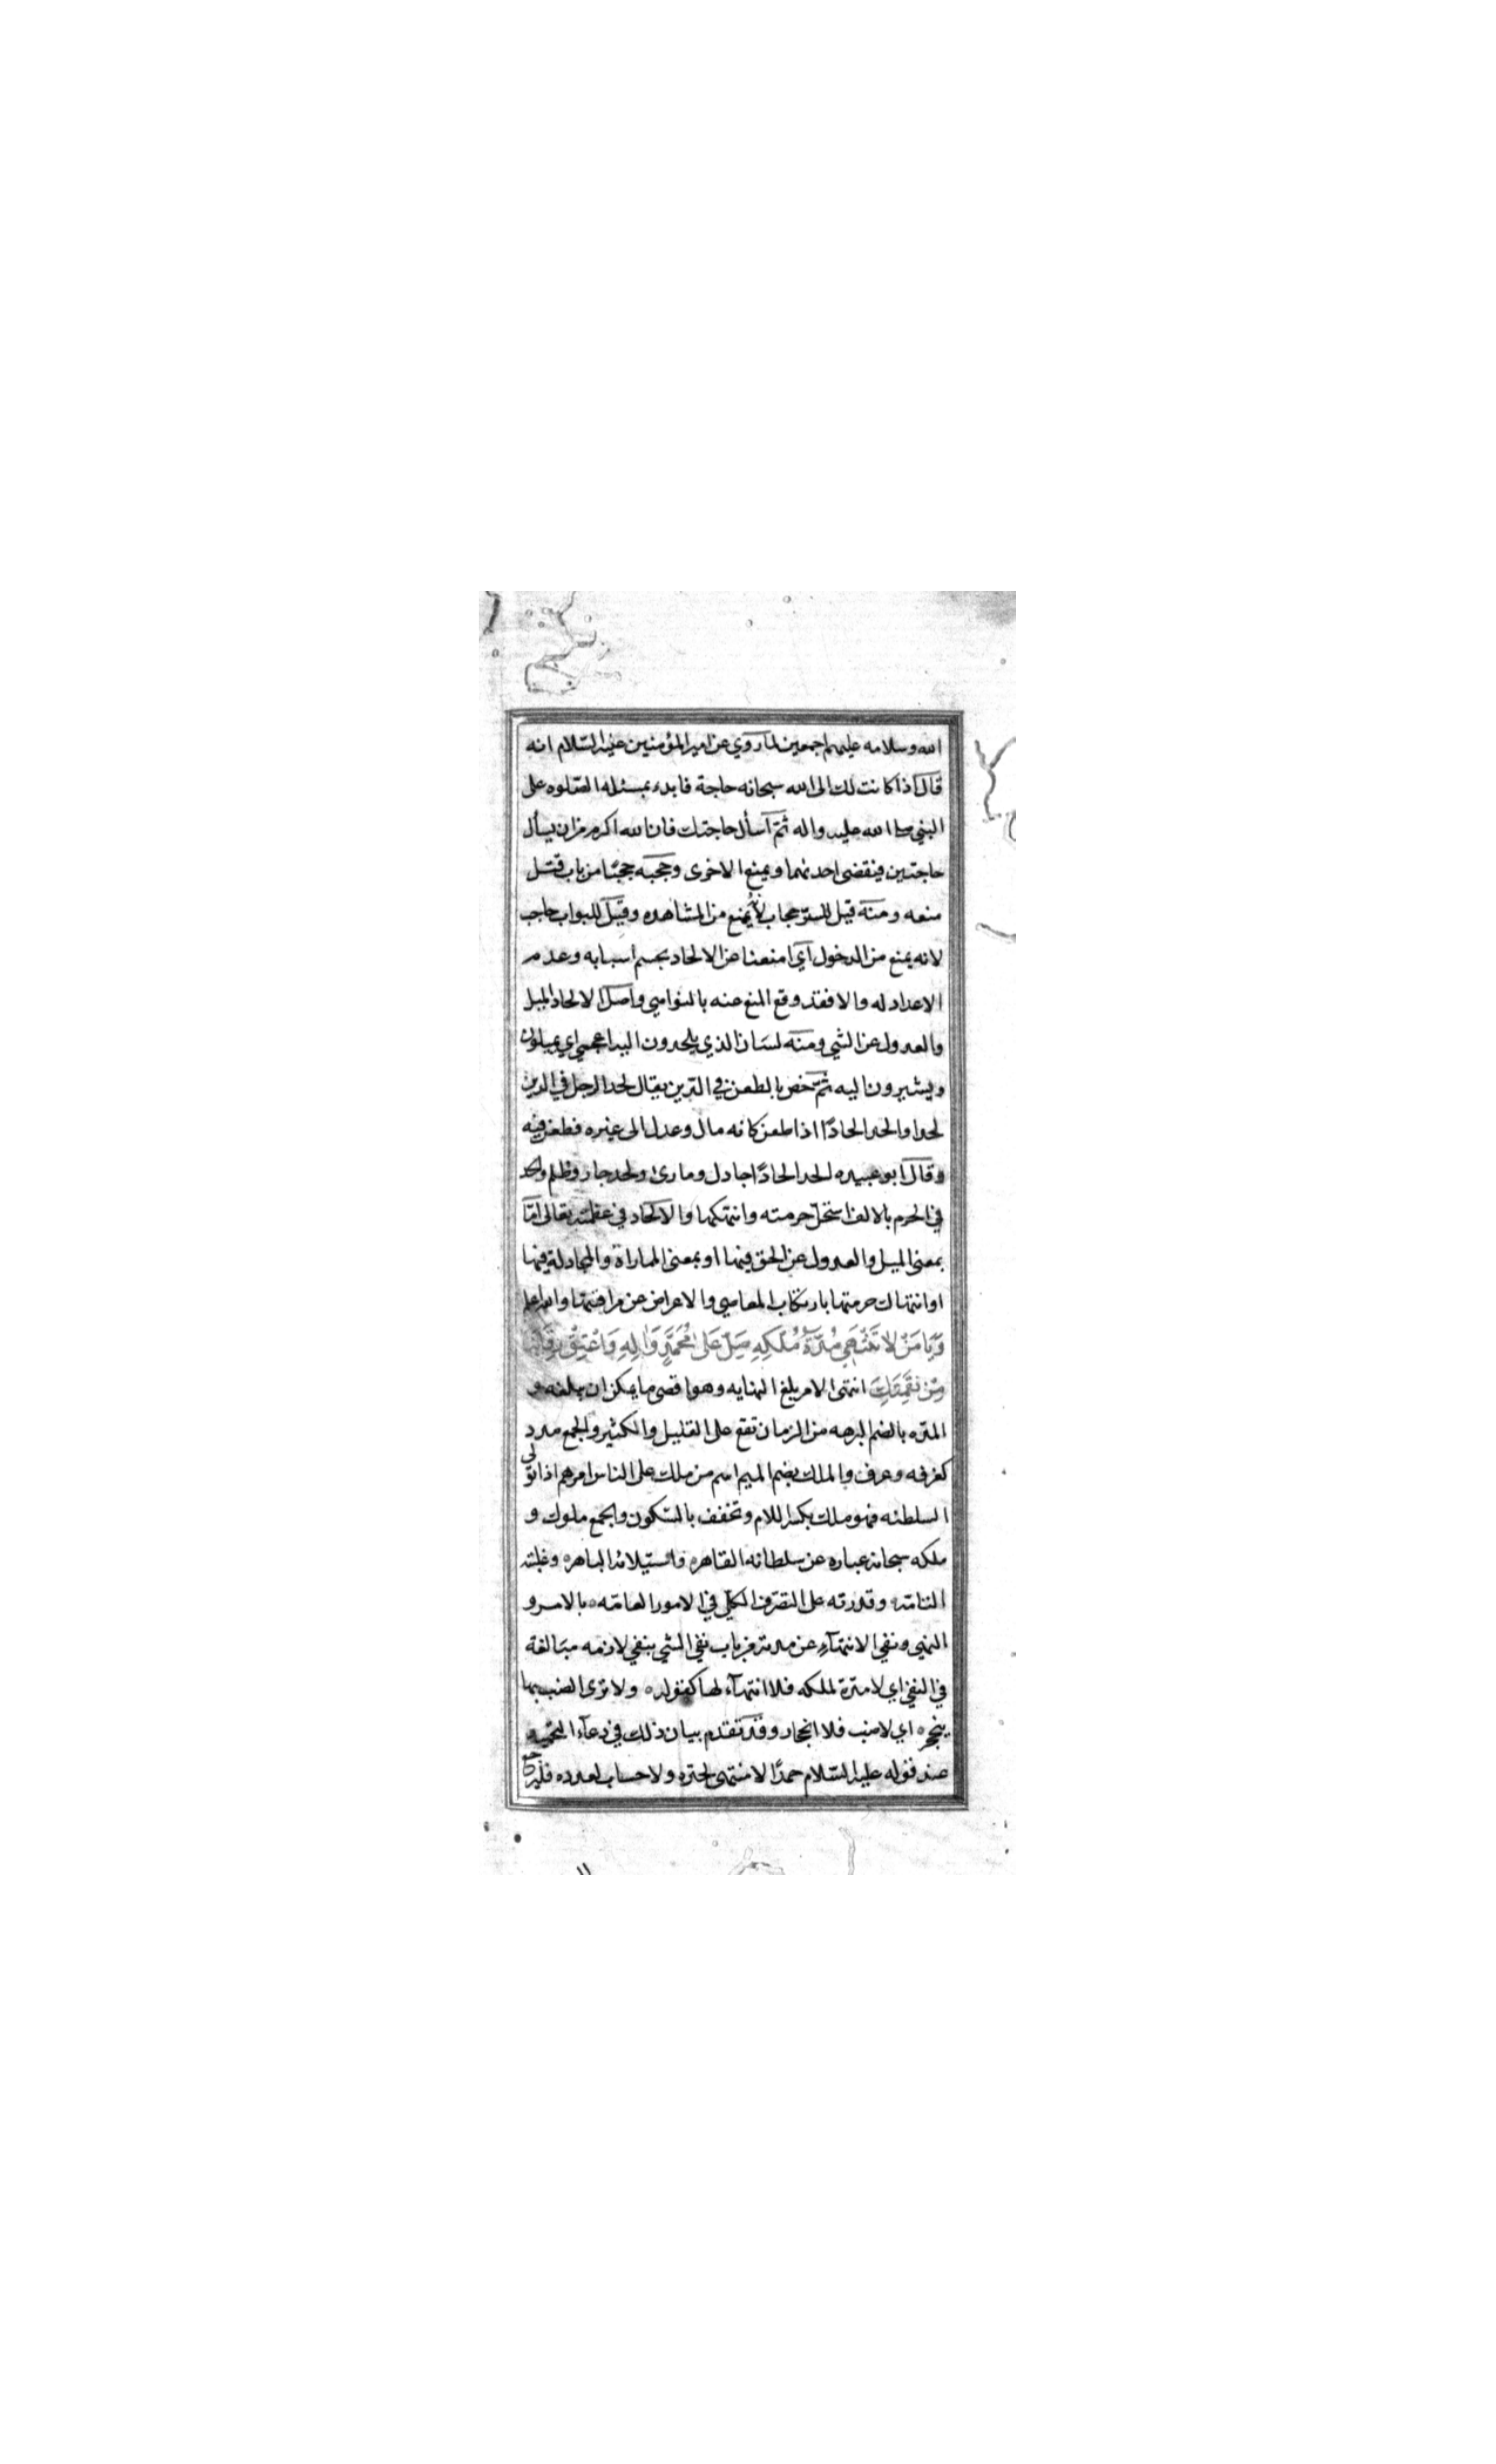 الله وسلامه عليهم اجمعين لما روي عن امير المؤمنين عليه السلام انه
قال اذا كانت لك الى الله سبحانه حاجة فابدء بمسئله الصلوه على
النبي صلى الله عليه واله ثم اسأل حاجتك فان الله اكرم من ان يسأل
حاجتين فيقضى احدىهما ويمنع الاخرى وحجبه حجبًا من باب قتل
منعه ومنه قيل للستر حجاب لأنه يمنع من المشاهده وقيل للبواب حاجب
لانه يمنع من الدخول اي امنعنا عن الالحاد بحسم اسبابه وعدم
الاعداد له والا فقد وقع المنع عنه بالنواهي واصل الالحاد الميل
والعدول عن الشي ومنه لسان الذي يلحدون اليه اعجمي اي يميلون
ويشيرون اليه ثم خص بالطعن في الدين يقال لحد الرجل في الدين
لحدا والحد الحادًا اذا طعن كانه مال وعدل الى غيره فطعن فيه
وقال ابو عبيده الحد الحادًا جادل ومارى ولحد جار وظلم والحد
في الحرم بالالف استحل حرمته وانتهكها والالحاد في عظمته تعالى اما
بمعنى الميل والعدول عن الحق فيها او بمعنى المماراة والمجادلة فيها
او انتهاك حرمتها بارتكاب المعاصي والاعراض عن مراقبتها والله اعلم
وَيَا مَنْ لا تَنْتَهِي مُدَّةُ مُلْكِهِ صَلِّ عَلى مُحَمَّدٍ وَالِهِ وَاعْتِقْ رِقَابَنَا
مِنْ نَقِمَتِكَ انتهى الامر بلغ النهايه وهو اقصى ما يمكن ان يبلغه و
المده بالضم البرهه من الزمان تقع على القليل والكثير والجمع مدد
كغرفه وغرف والملك بضم الميم اسم من ملك على الناس امرهم اذا تولى
السلطنه فهو ملك بكسر اللام وتخفف بالسكون والجمع ملوك و
ملكه سبحانه عباره عن سلطانه القاهره واستيلائه الباهره وغلبته
التامه وقدرته على التصرف الكلي في الامور العامه بالامر و
النهي ونفي الانتهآء عن مدته من باب نفي الشي بنفي لازمه مبالغة
في النفي اي لا مدة لملكه فلا انتهآء لها كقوله ولا ترى الضب بها
ينجحر اي لا ضب فلا انجحار وقد تقدم بيان ذلك في دعآء التحميد
عند قوله عليه السلام حمدًا لا منتهى لحده ولا حساب لعدده فليرجع